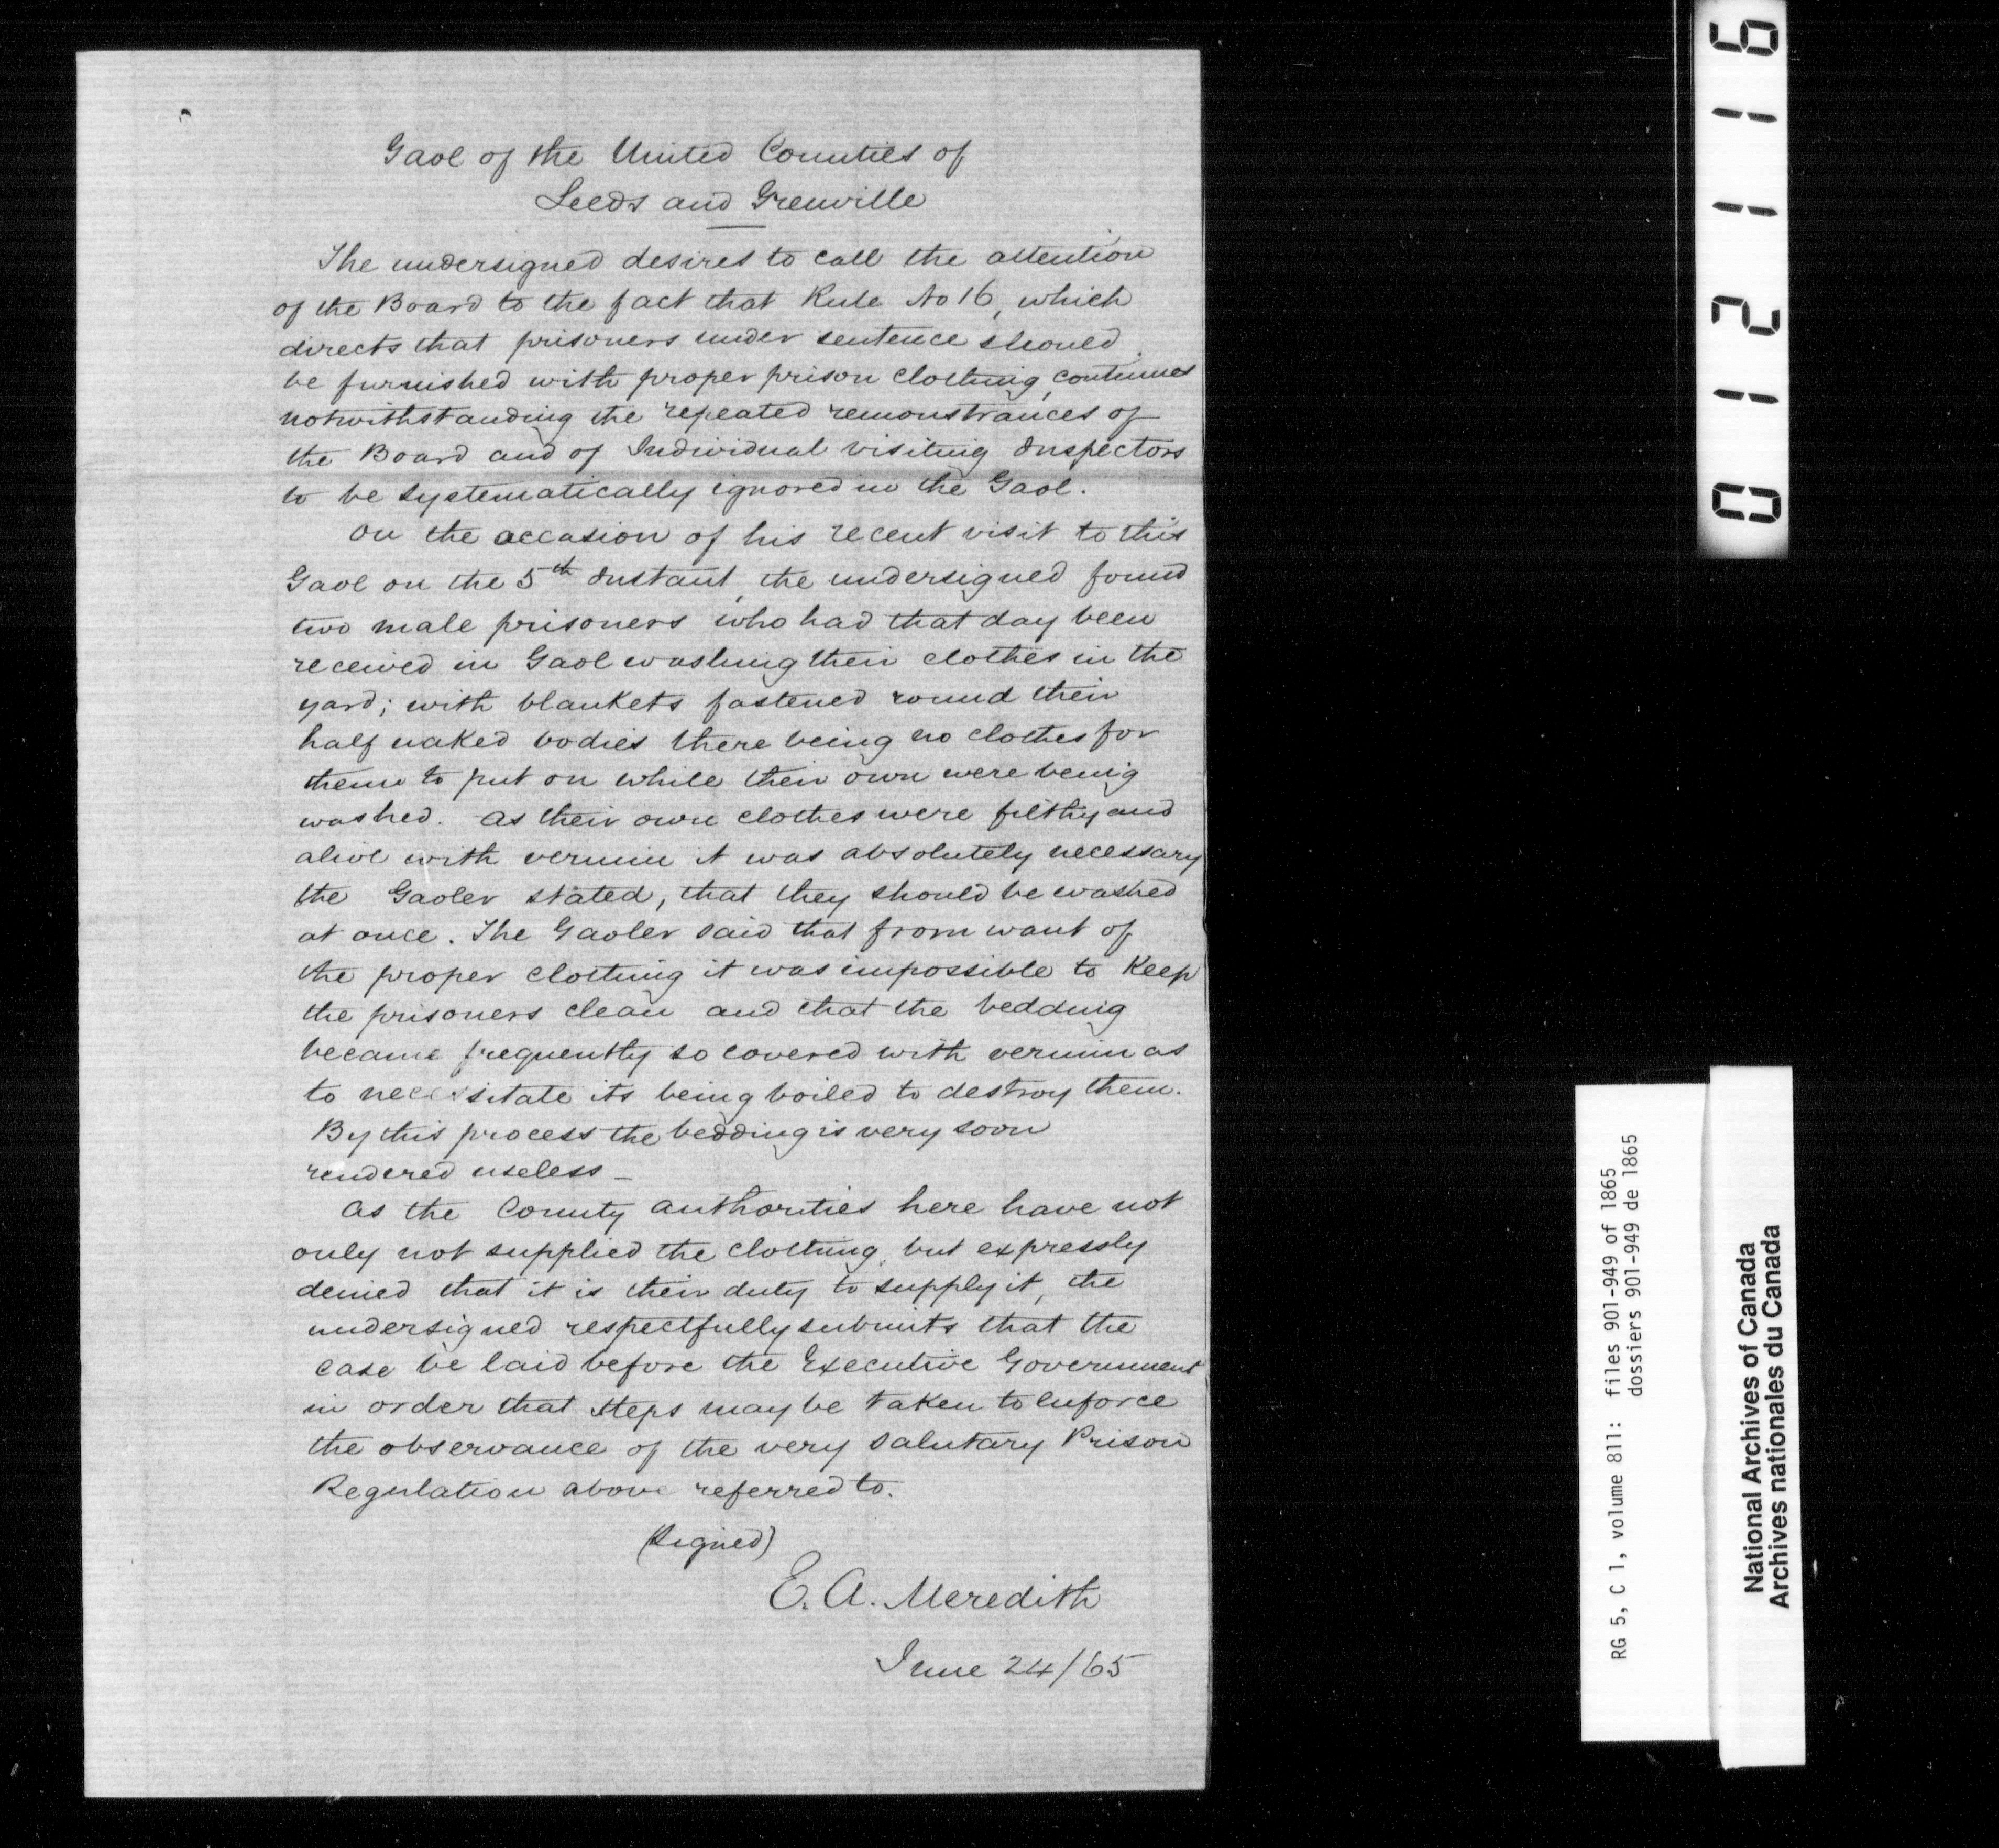 Gaol of the United Counties of
Leeds and Grenville
The undersigned desires to call the attention
of the Board to the fact that Rule No 16, which
directs that prisoners under sentence should
be furnished with proper prison clothing, continues
notwithstanding the repeated remonstrances of
the Board and of Individual visiting Inspectors
to be systematically ignored in the Gaol.
On the occasion of his recent visit to this
Gaol on the 5th Instant, the undersigned found
two male prisoners who had that day been
received in Gaol washing their clothes in the
yard; with blankets fastened round their
half naked bodies there being no clothes for
them to put on while their own were being
washed. As their own clothes were filthy and
alive with vermin it was absolutely necessary
the Gaoler stated, that they should be washed
at once. The Gaoler said that from want of
the proper clothing it was impossible to Keep
the prisoners clean and that the bedding
became frequently so covered with vermin as
to necessitate its being boiled to destroy them.
By this process the bedding is very soon
rendered useless _
As the County authorities here have not
only not supplied the clothing, but expressly
denied that it is their duty to supply it, the
undersigned respectfully submits that the
case be laid before the Executive Government
in order that steps may be taken to enforce
the observance of the very salutary Prison
Regulation above referred to.
(Signed)
E. A. Meredith
June 24/65
012116
RG 5, C 1, volume 811: files 901-949 of 1865
dossiers 901-949 de 1865
National Archives of Canada
Archives nationales du Canada